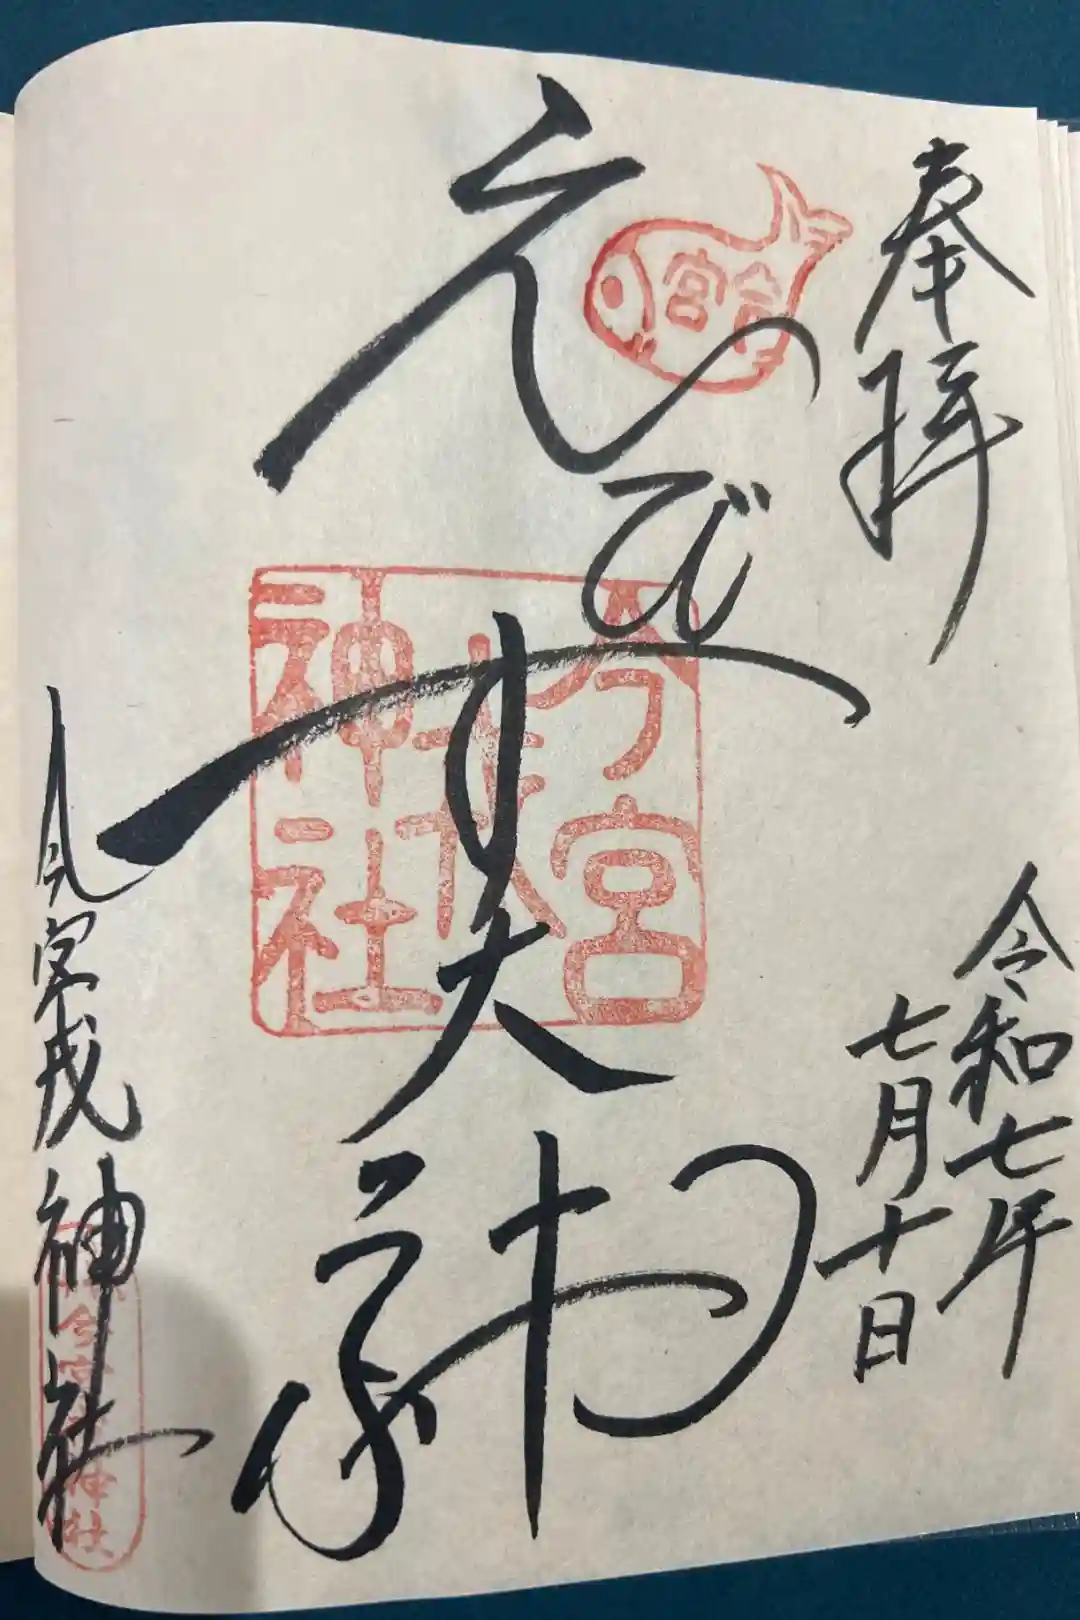 奉拝
令和七年
七月十日
宮
えびす大神
今宮
戎
神社
今宮戎神社
今宮戎神社